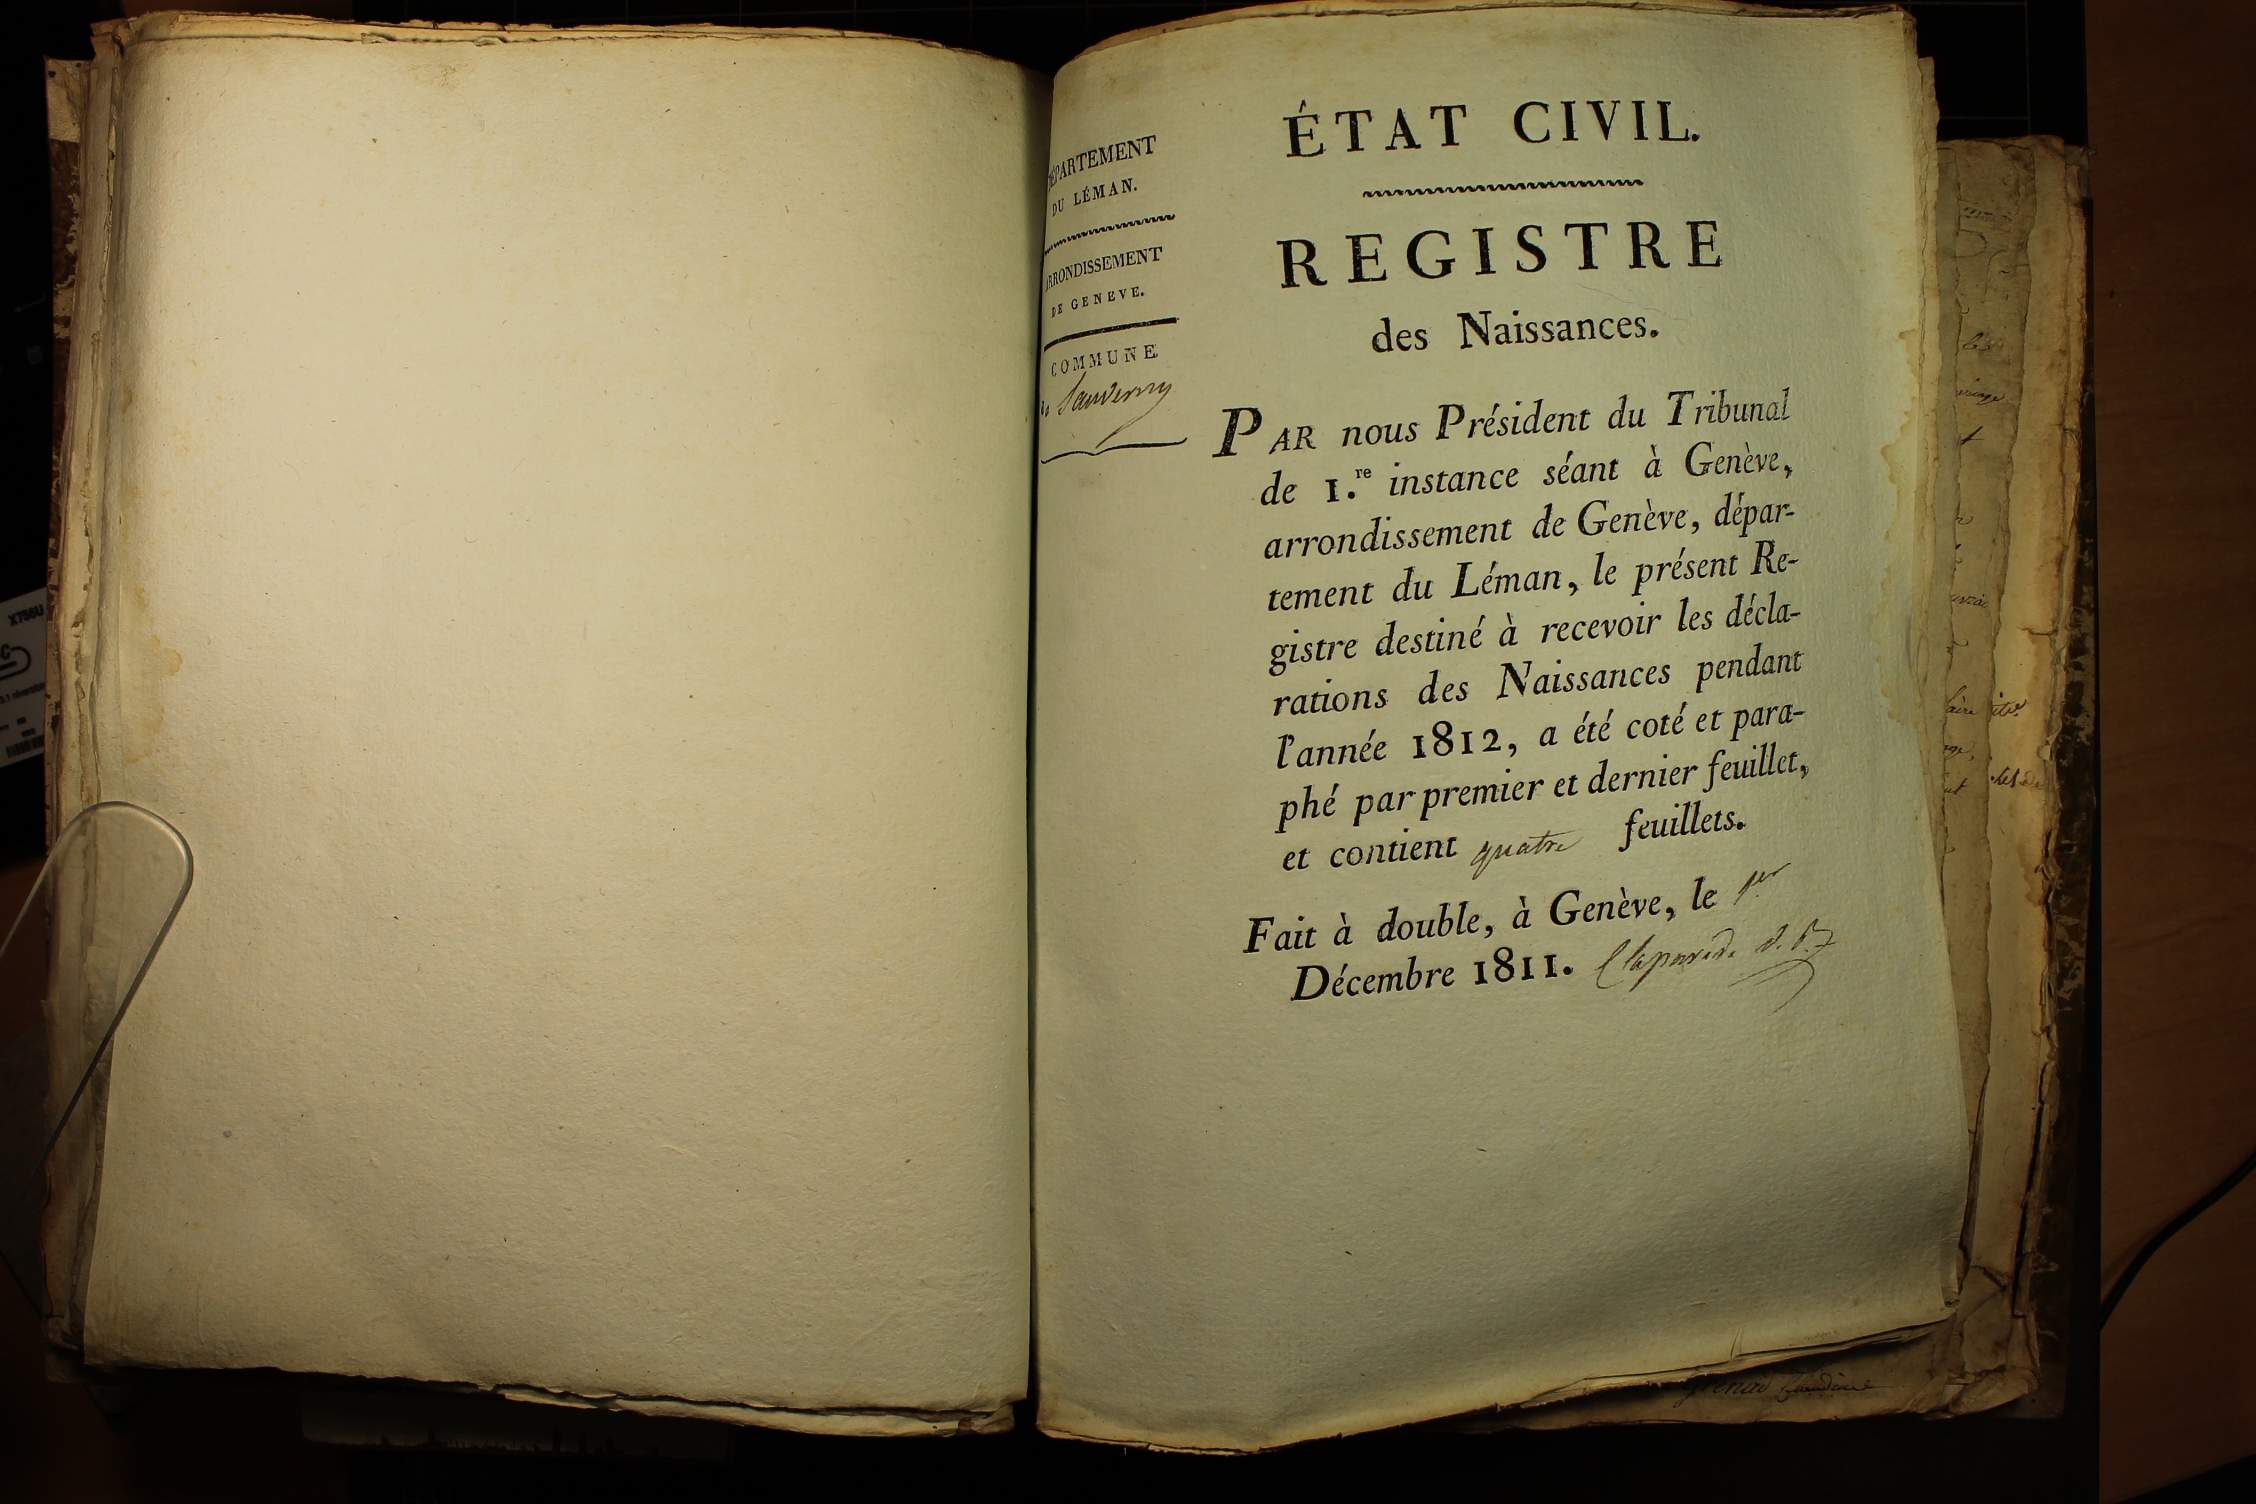 DÉPARTEMENT
DU LÉMAN.
ARRONDISSEMENT
DE GENEVE.
COMMUNE
de Sauverny
ÉTAT CIVIL.
REGISTRE
des Naissances.
PAR nous Président du Tribunal
de 1.re instance séant à Genève,
arrondissement de Genève, dépar-
tement du Léman, le présent Re-
gistre destiné à recevoir les décla-
rations des Naissances pendant
l'année 1812, a été coté et para-
phé par premier et dernier feuillet,
et contient quatre feuillets.
Fait à double, à Genève, le 1er
Décembre 1811. Claparede v. P.
X756U